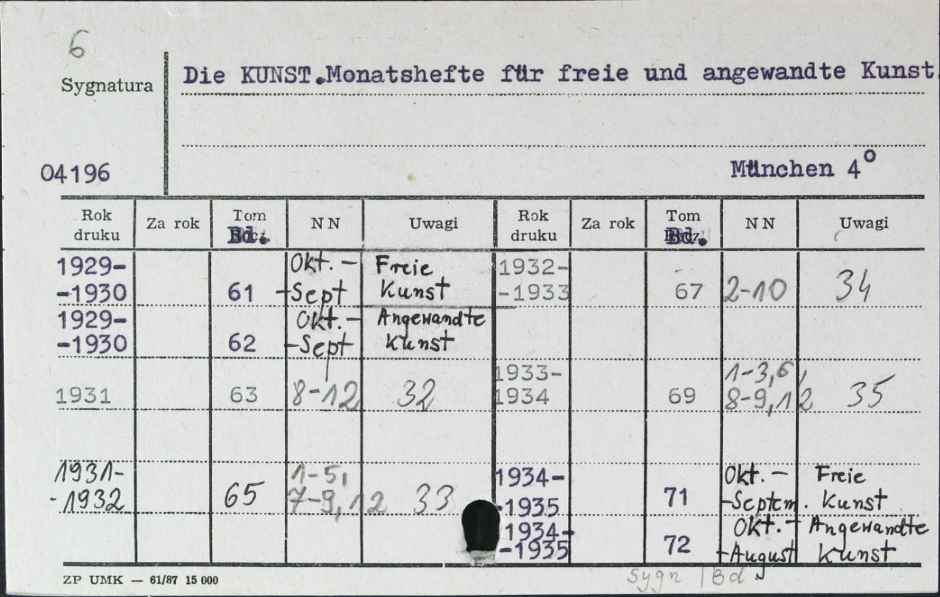 6
Sygnatura
Die KUNST.Monatshefte für freie und angewandte Kunst.
04196
München 4°
Rok druku Za rok Tom Bd. NN Uwagi Rok druku Za rok Tom Bd. NN Uwagi
1929- Okt. – Freie 1932-
-1930 61 -Sept Kunst -1933 67 2-10 34
1929- Okt.- Angewandte
-1930 62 -Sept Kunst
1933- 1-3,6,
1931 63 8-12 32 1934 69 8-9,12 35
1931- 1-5, 1934- Okt. – Freie
-1932 65 7-9,12 33 -1935 71 -Septem. Kunst
1934- Okt.- Angewandte
-1935 72 -August Kunst
ZP UMK — 61/87 15 000
Sygn | Bd